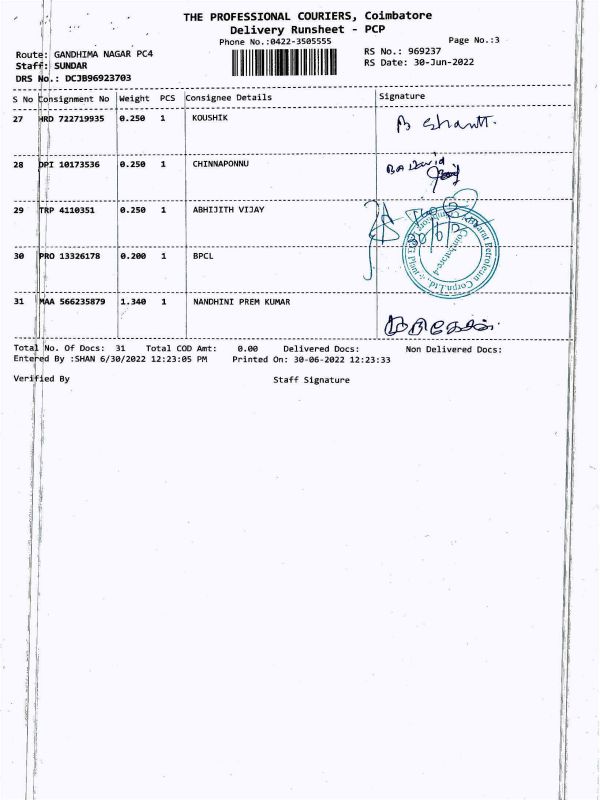 THE PROFESSIONAL COURIERS, Coimbatore
Delivery Runsheet - PCP
Phone No.:0422-3505555 Page No.:3
Route: GANDHIMA NAGAR PC4 RS No.: 969237
Staff: SUNDAR RS Date: 30-Jun-2022
DRS No.: DCJB96923703
S No Consignment No Weight PCS Consignee Details Signature
27 HRD 722719935 0.250 1 KOUSHIK
B Shanti.
28 DPI 10173536 0.250 1 CHINNAPONNU
B A David
29 TRP 4110351 0.250 1 ABHIJITH VIJAY
30 PRO 13326178 0.200 1 BPCL
Petroleum Corpn.Ltd.
Coimbatore-4
31 MAA 566235879 1.340 1 NANDHINI PREM KUMAR
Total No. Of Docs: 31 Total COD Amt: 0.00 Delivered Docs: Non Delivered Docs:
Entered By :SHAN 6/30/2022 12:23:05 PM Printed On: 30-06-2022 12:23:33
Verified By Staff Signature